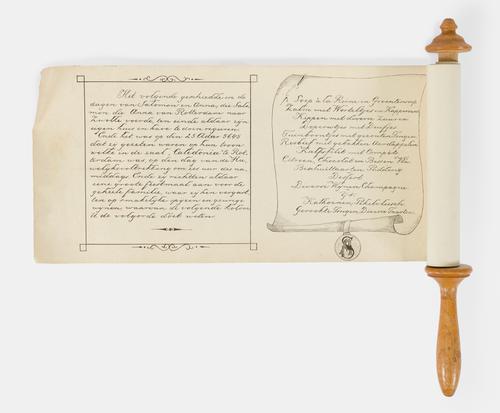 Het volgende geschiedde in de
dagen van Salomon en Anna, die Salo
mon die Anna van Rotterdam naar
Zwolle voerde, ten einde aldaar zijn
eigen huis en have te doen regeeren
Ende het was op den 23 Adar 5645
dat zij gezeten waren op hun troon
welke in de zaal Caledonia te Rot
terdam was, op den dag van de Hu
welijksvoltrekking om zes uur des na
middags Ende zij richtten aldaar
eene groote feestmaal aan voor de
geheele familie, waar zij hen vergast
ten op smakelijke spijzen en geurige
wijnen waarvan de volgende kolom
U de volgorde doet weten
Soep à la Reine en Groentesoep
Zalm met Worteltjes en Kappersaus
Kippen met divers zuur
Doperwtjes met
Tuinboontjes met gerookte Tongen
Rosbief met gebakken Aardappelen
Kalfsfilet met Compote
Citroen, Chocolaat en Bessen Vla
Biscuittaarten Pudding
Dessert
Diverse Wijnen Champagne
&&
Gerookte Tongen, Diverse Taarten